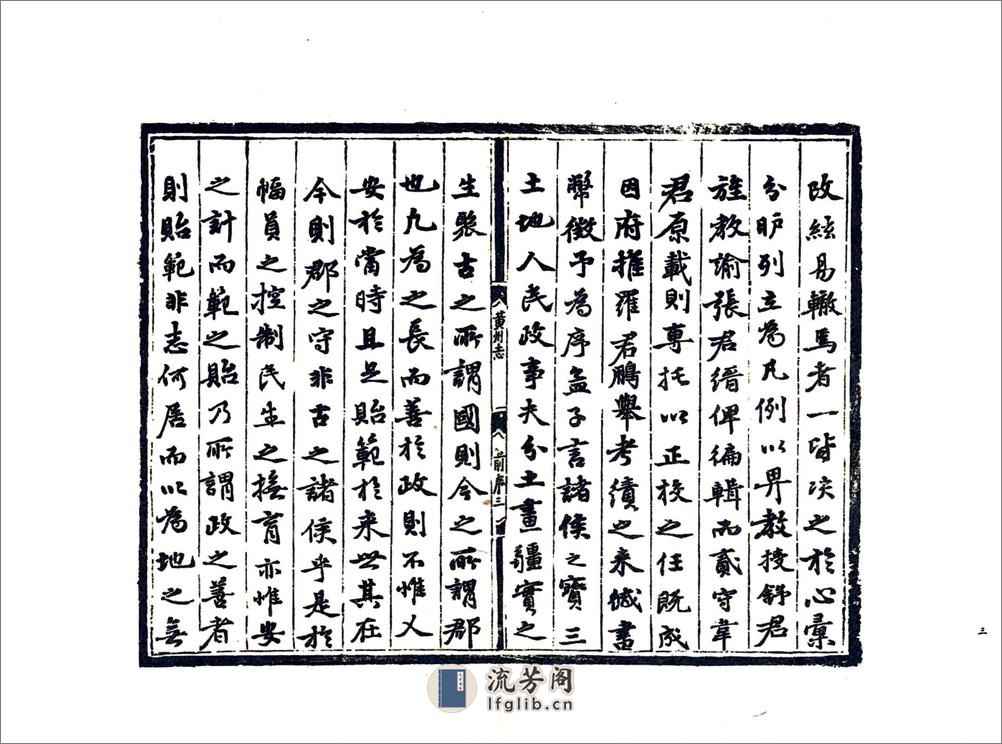 改絃易轍焉者一皆决之於心彙
分眆列立為凡例以畀教授舒君
旌教諭張君縉俾徧輯而貳守韋
君原載則專托以正校之任既成
因府推羅君鵬舉考績之来緘書
幣徵予為序孟子言諸侯之寳三
土地人民政事夫分土畫疆實之
黄州志
前序
三
生聚古之所謂國則今之所謂郡
也凡為之長而善於政則不惟乂
安於當時且足貽範於来世其在
今則郡之守非古之諸侯乎是於
幅員之控制民生之撫育亦惟安
之計而範之貽乃所謂政之善者
則貽範非志何居而以為地之無
三
流芳阁
lfglib.cn